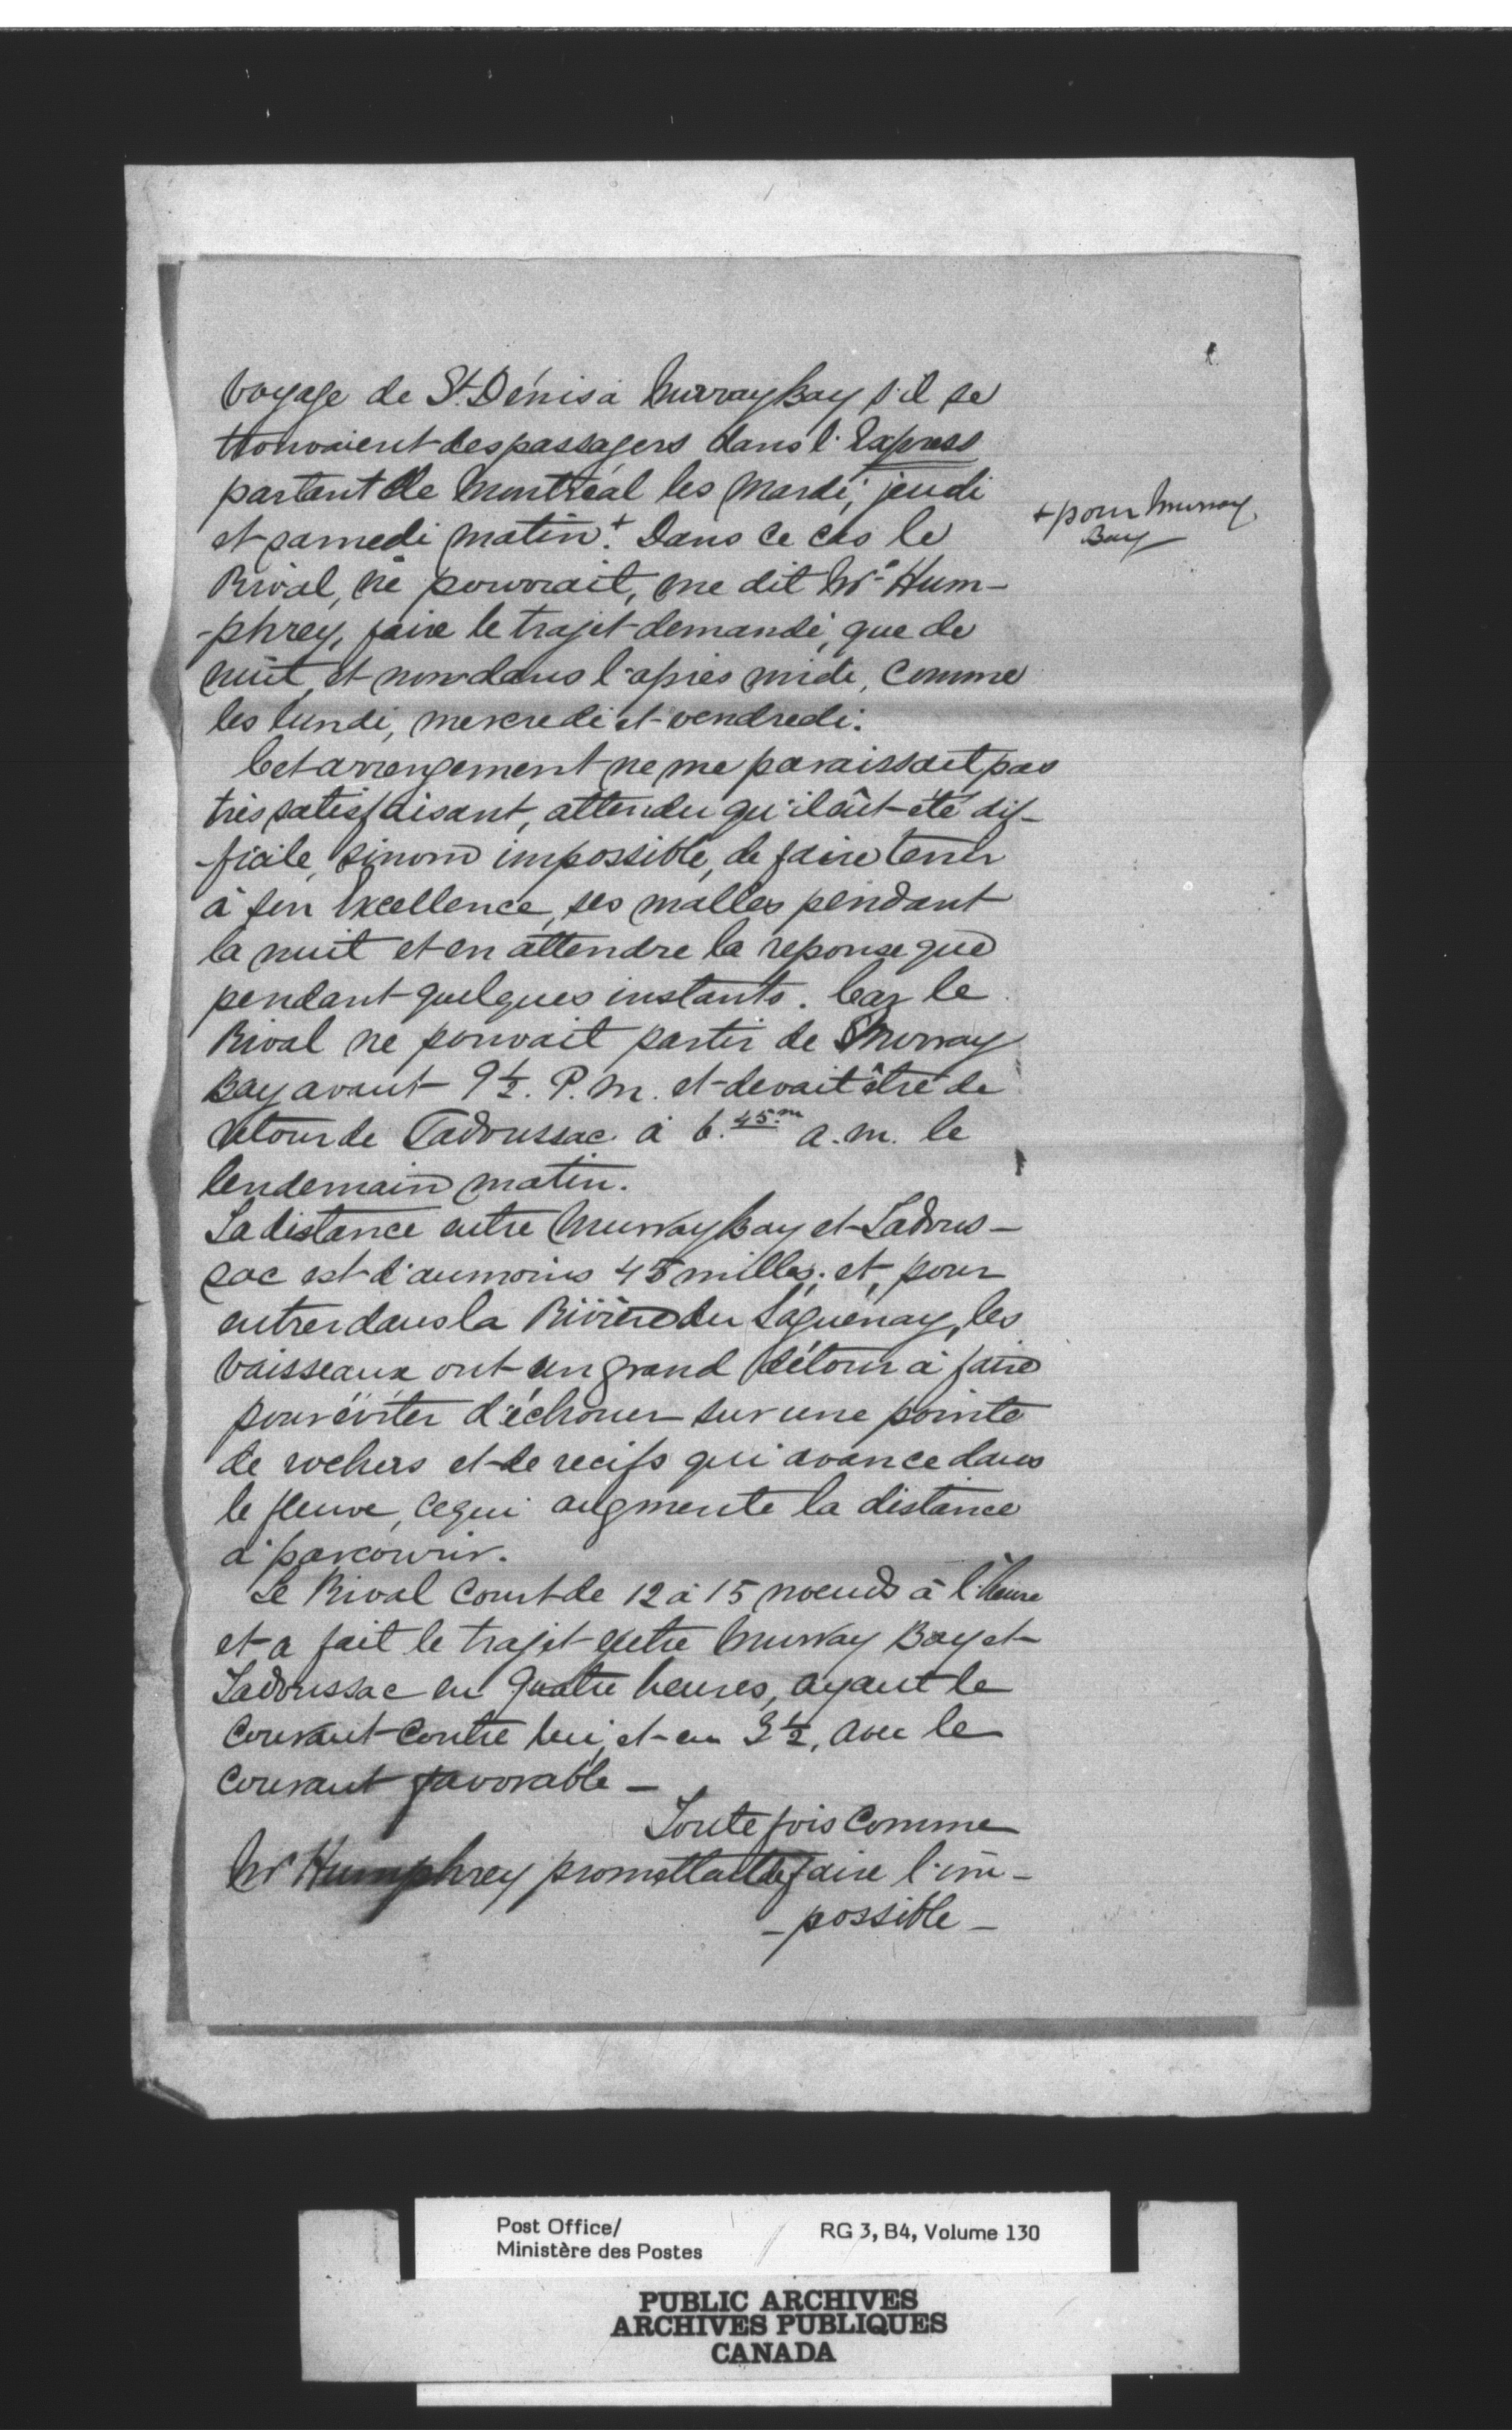 voyage de St. Dénis à Murray Bay s'il se
trouvaient des passagers dans l'Express
partant de Montréal les mardi, jeudi
et samedi matin.+ Dans ce cas le
+ pour Murray
Bay
Rival, ne pouvait, me dit Mr. Hum-
-phrey, faire le trajet demandé, que de
nuit, et non dans l'après midi, comme
les lundi, mercredi et vendredi.
Cet arrengement ne me paraissait pas
très satisfaisant, attendu qu'il eût été dif-
-ficile, sinon impossible, de faire tenir
à Son Excellence, ses malles pendant
la nuit et en attendre la reponse que
pendant quelques instants. Car le
Rival ne pouvait partir de Murray
Bay avant 9 1/2. P.M. et devait être de
retour de Tadoussac à 6.45m a.m. le
lendemain matin.
La distance entre Murray Bay et Tadous-
sac est d'aumoins 45 milles; et, pour
entrer dans la Rivière du Saguénay, les
vaisseaux ont un grand détour à faire
pour éviter d'échouer sur une pointe
de rochers et de recifs qui avance dans
le fleuve, ce qui augmente la distance
à parcourir.
Le Rival court de 12 à 15 noeuds à l'heure
et a fait le trajet entre Murray Bay et
Tadoussac en quatre heures, ayant le
courant contre lui, et en 3 1/2, avec le
courant favorable —
Toute fois comme
Mr Humphrey promettait de faire l'im-
- possible -
Post Office/
Ministère des Postes
RG 3, B4, Volume 130
PUBLIC ARCHIVES
ARCHIVES PUBLIQUES
CANADA